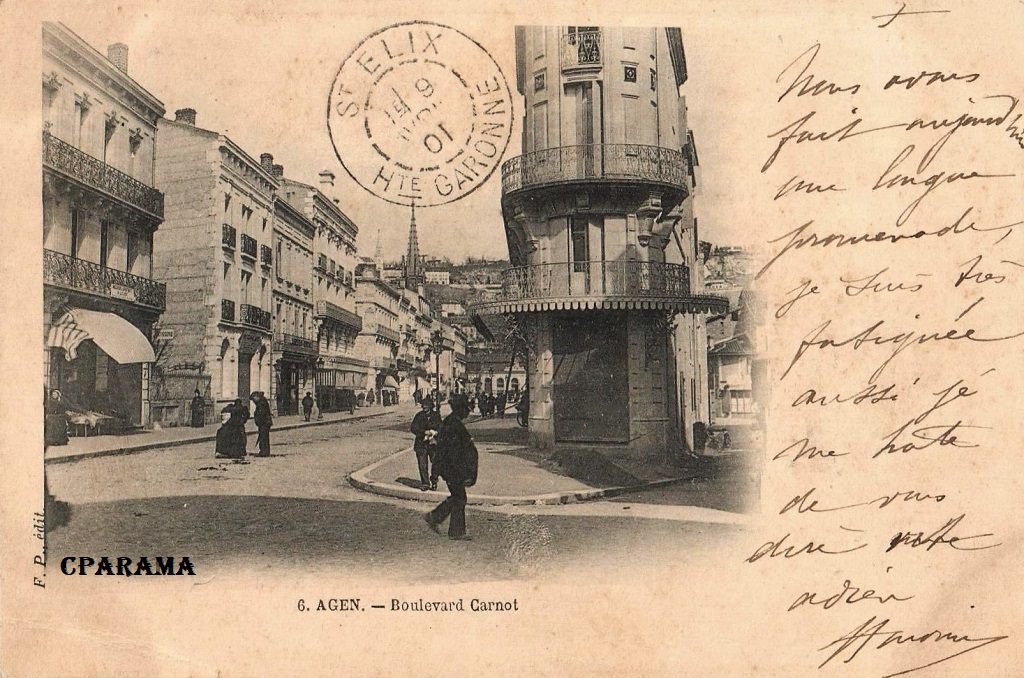 ST ELIX
9
01
HTE GARONNE
Nous avons
fait aujourd'hui
une longue
promenade,
je suis très
fatiguée
aussi je
me hâte
de vous
dire vite
adieu
F. P., édit.
CPARAMA
6. AGEN. — Boulevard Carnot